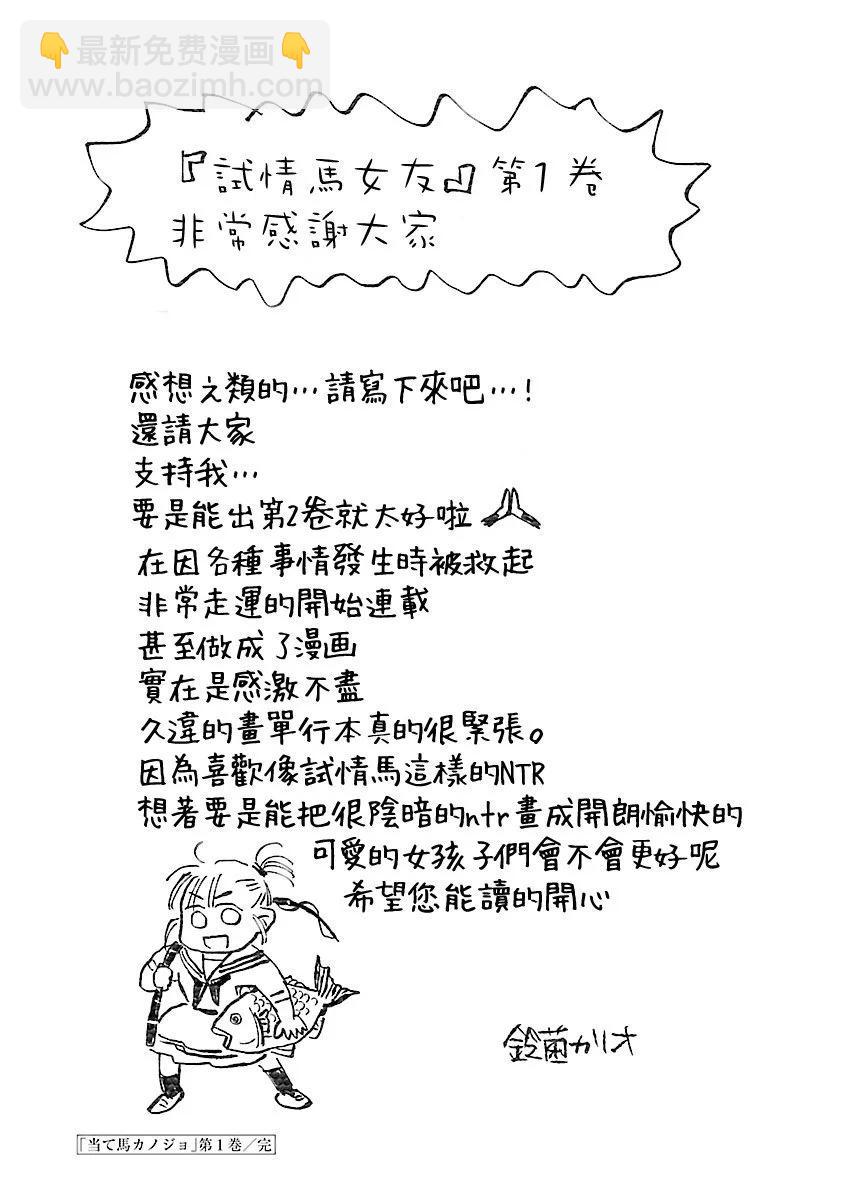 最新免費漫画
www.baozimh.com
『試情馬女友』第1卷
非常感謝大家
感想之類的…請寫下來吧…!
還請大家
支持我…
要是能出第2卷就太好啦
在因各種事情發生時被救起
非常走運的開始連載
甚至做成了漫画
實在是感激不盡
久違的畫單行本真的很緊張。
因為喜歡像試情馬這樣的NTR
想著要是能把很陰暗的ntr畫成開朗愉快的
可愛的女孩子們會不會更好呢
希望您能讀的開心
鈴菌カリオ
「当て馬カノジョ」第1巻/完